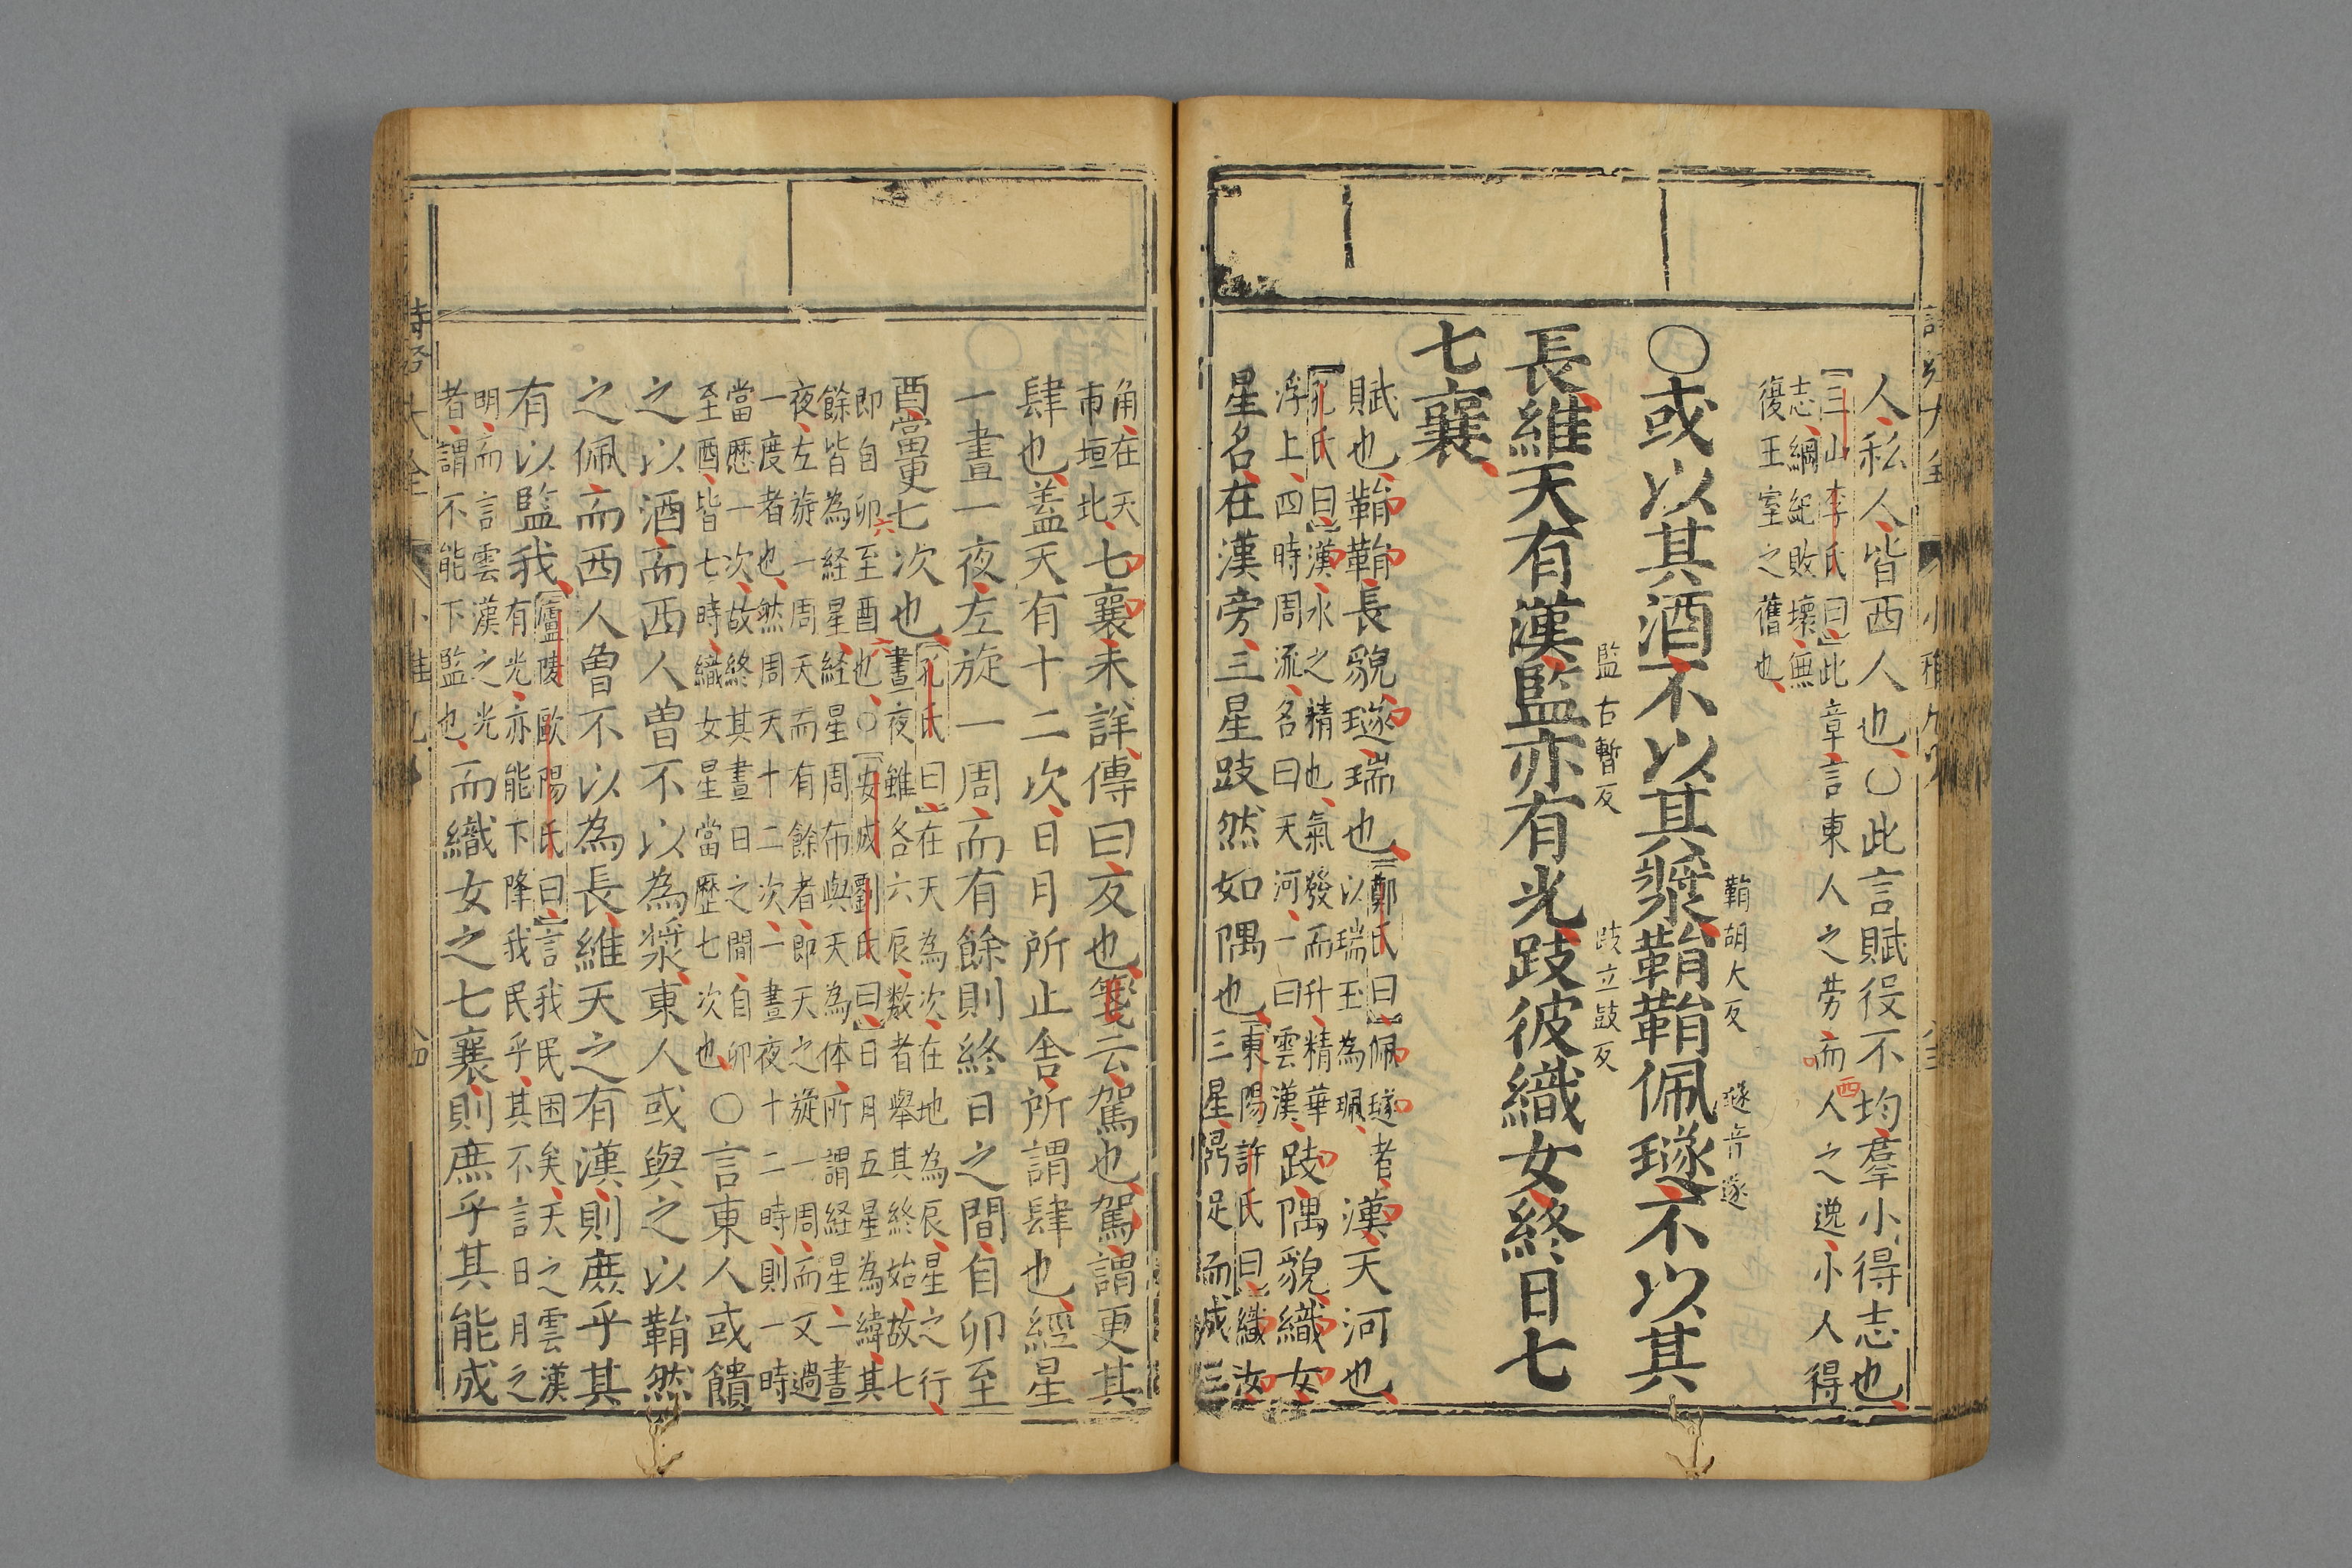 人私人皆西人也○此言賦役不均羣小得志也
【三山李氏曰】此章言東人之勞而人之逸小人得
西
志綱紀敗壞無
復王室之舊也
○或以其酒不以其漿鞙鞙佩璲不以其
鞙胡犬反 璲音遂
長維天有漢監亦有光跂彼織女終日七
監古暫反 跂立豉反
七襄
賦也鞙鞙長貌璲瑞也【鄭氏曰】佩璲者以瑞玉為珮漢天河也
【孔氏曰】漢水之精也氣發而升精華浮上四時周流名曰天河一曰雲漢跂隅貌織女
星名在漢旁三星跂然如隅也【東陽許氏曰】織女三星鼎足而成三
角在天市垣北七襄未詳傳曰反也箋云駕也駕謂更其
肆也蓋天有十二次日月所止舍所謂肆也經星
一晝一夜左旋一周而有餘則終日之間自卯至
酉當更七次也【孔氏曰】在天為次在地為辰星之行晝夜雖各六辰數者舉其終始故七
即自卯至酉也○【安成劉氏曰】日月五星為緯其
餘皆為経星経星周布與天為体所謂経星一晝
夜左旋一周天而有餘者即天之旋一周而又過
一度者也然周天十二次一晝夜十二時則一時
當歷一次故終其晝日之間自卯至酉皆七時織女星當歷七次也○言東人或饋
之以酒而西人曾不以為漿東人或與之以鞙然
之佩而西人曾不以為長維天之有漢則庶乎其
有以監我【廬陵歐陽氏曰】言我民困矣天之雲漢有光亦能下降我民乎其不言日月之
明而言雲漢之光者謂不能下監也而織女之七襄則庶乎其能成
詩經大全 小雅